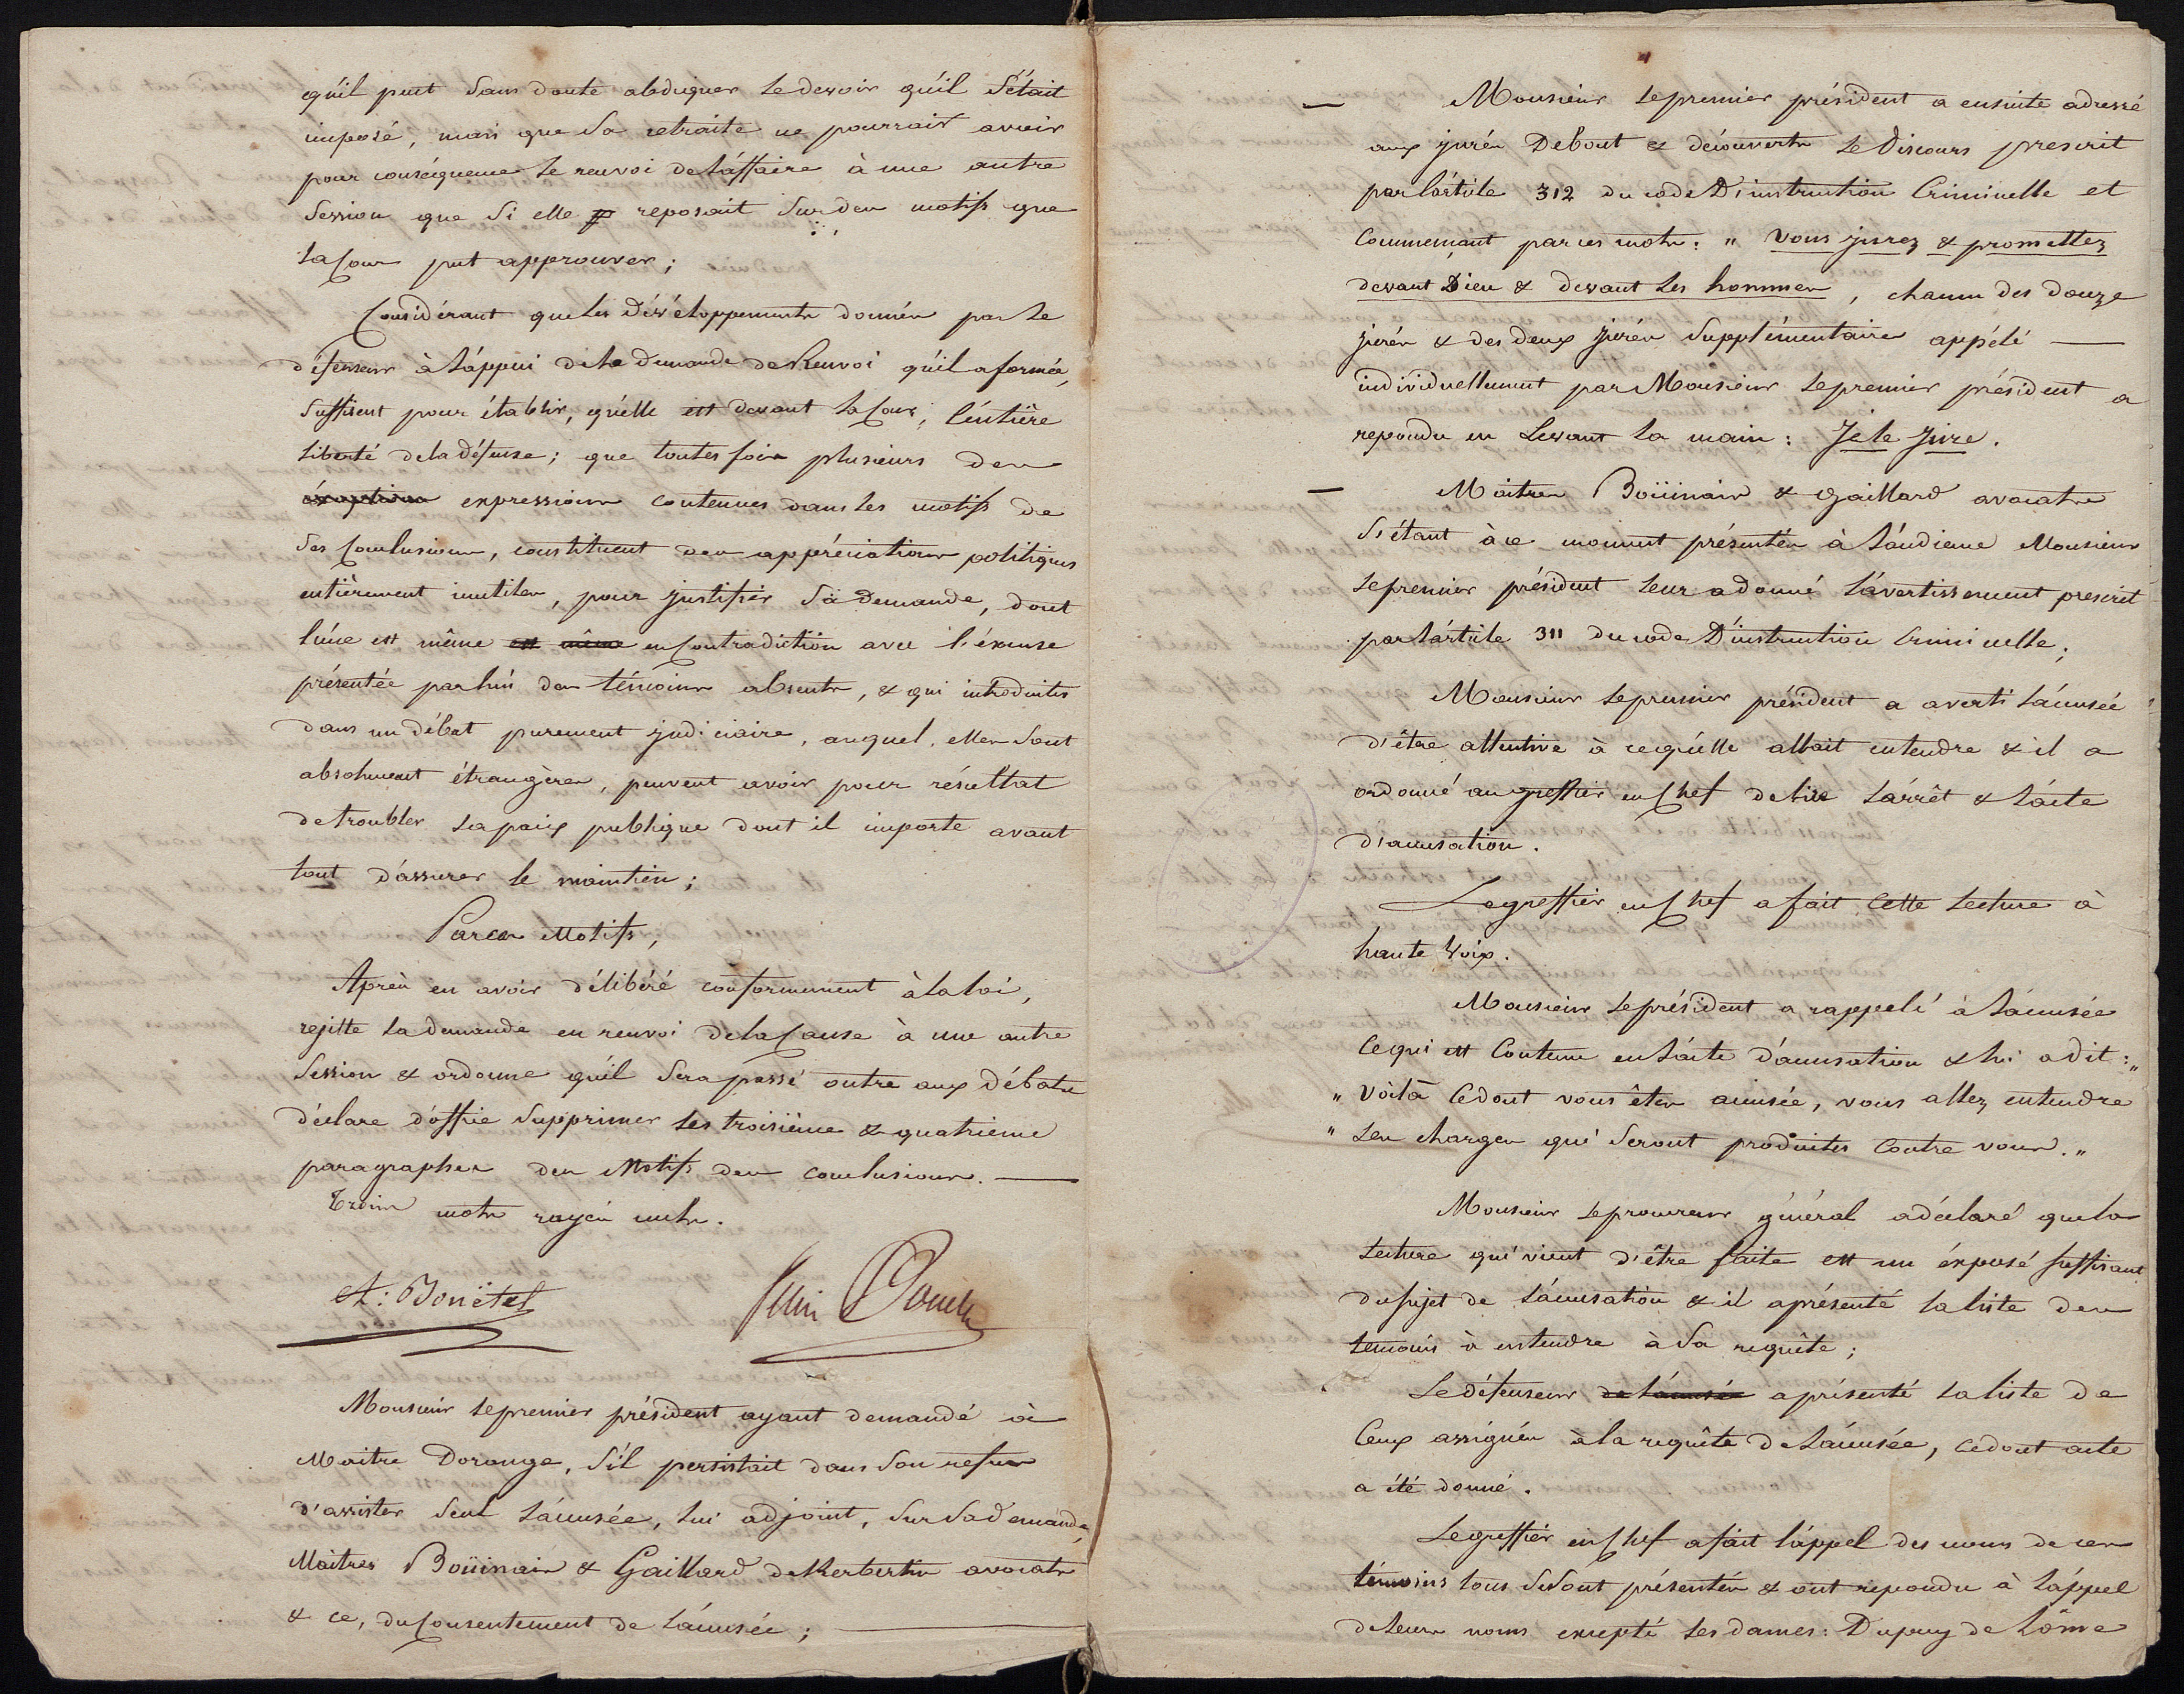 qu'il peut sans doute abdiquer le devoir qu'il s'était
imposé, mais que sa retraite ne pourrait avoir
pour conséquence le renvoi de l'affaire à une autre
session que si elle reposait sur des motifs que
la Cour put approuver;
Considérant que les dévéloppements donnés par le
défenseur à l'appui de la demande de Renvoi qu'il a formée,
suffisent pour établir, qu'elle est devant la Cour, l'entière
liberté de la défense; que toutes fois plusieurs des
expressions contenues dans les motifs de
ses Conclusions, constituent des appréciations politiques
entièrement inutiles, pour justifier sa demande, dont
l'une est même est même en Contradiction avec l'éxcuse
présentée par lui des témoins absents, & qui introduites
dans un débat purement judiciaire, auquel, elles sont
absolument étrangères, peuvent avoir pour résultat
de troubler la paix publique dont il importe avant
tout d'assurer le maintien;
Par ces Motifs,
Après en avoir délibéré conformement à la loi,
rejette la demande en renvoi de la Cause à une autre
session & ordonne qu'il sera passé outre aux débats
déclare d'office supprimer les troisième & quatrieme
paragraphes des Motifs des conclusions.
Trois mots rayés nuls.
Monsieur le premier président ayant demandé à
Maitre Dorange, s'il persistait dans son refus
d'assister seul l'accusée, lui adjoint, sur sa demande,
Maitres Boüinais & Gaillard de Kerbertin avocats
& ce, du Consentement de l'accusée;
Monsieur le premier président a ensuite adressé
aux jurés Debout & découverts le Discours prescrit
par l'article 312 du code D'instruction Criminelle et
Commençant par ces mots: " Vous jurez & promettez
devant Dieu & devant les hommes, chacun des douze
jurés & des deux jurés supplémentaires appélé
individuellement par Monsieur le premier président a
repondu en Levant la main: Je le Jure.
Maitres Boüinais & Gaillard avocats
s'étant à ce moment présentés à l'audience Monsieur
le premier président leur a donné l'avertissement prescrit
par l'article 311 du code D'instruction Criminelle;
Monsieur le premier président a averti l'accusée
d'être attentive à ce qu'elle allait entendre & il a
ordonné au greffier en Chef de lire l'arrêt & l'acte
d'accusation.
Le greffier en Chef a fait Cette lecture à
haute Voix.
Monsieur le président a rappelé à l'accusée
Ce qui est Contenu en l'acte d'accusation & lui a dit: "
" Voilà Ce dont vous êtes accusée, vous allez entendre
" les charges qui seront produites Contre vous. "
Monsieur le procureur général a déclaré que la
lecture qui vient d'être faite est un éxposé suffisant
du sujet de l'accusation & il a présenté la liste des
temoins à entendre à sa requête;
Le défenseur de l'accusée a présenté la liste de
Ceux assignés à la requête de l'accusée, ce dont acte
a été donné.
Le greffier en Chef a fait l'appel des noms de ces
témoins tous se sont présentés & ont repondu à l'appel
de leurs noms excepté les dames: Dupuy de Lôme